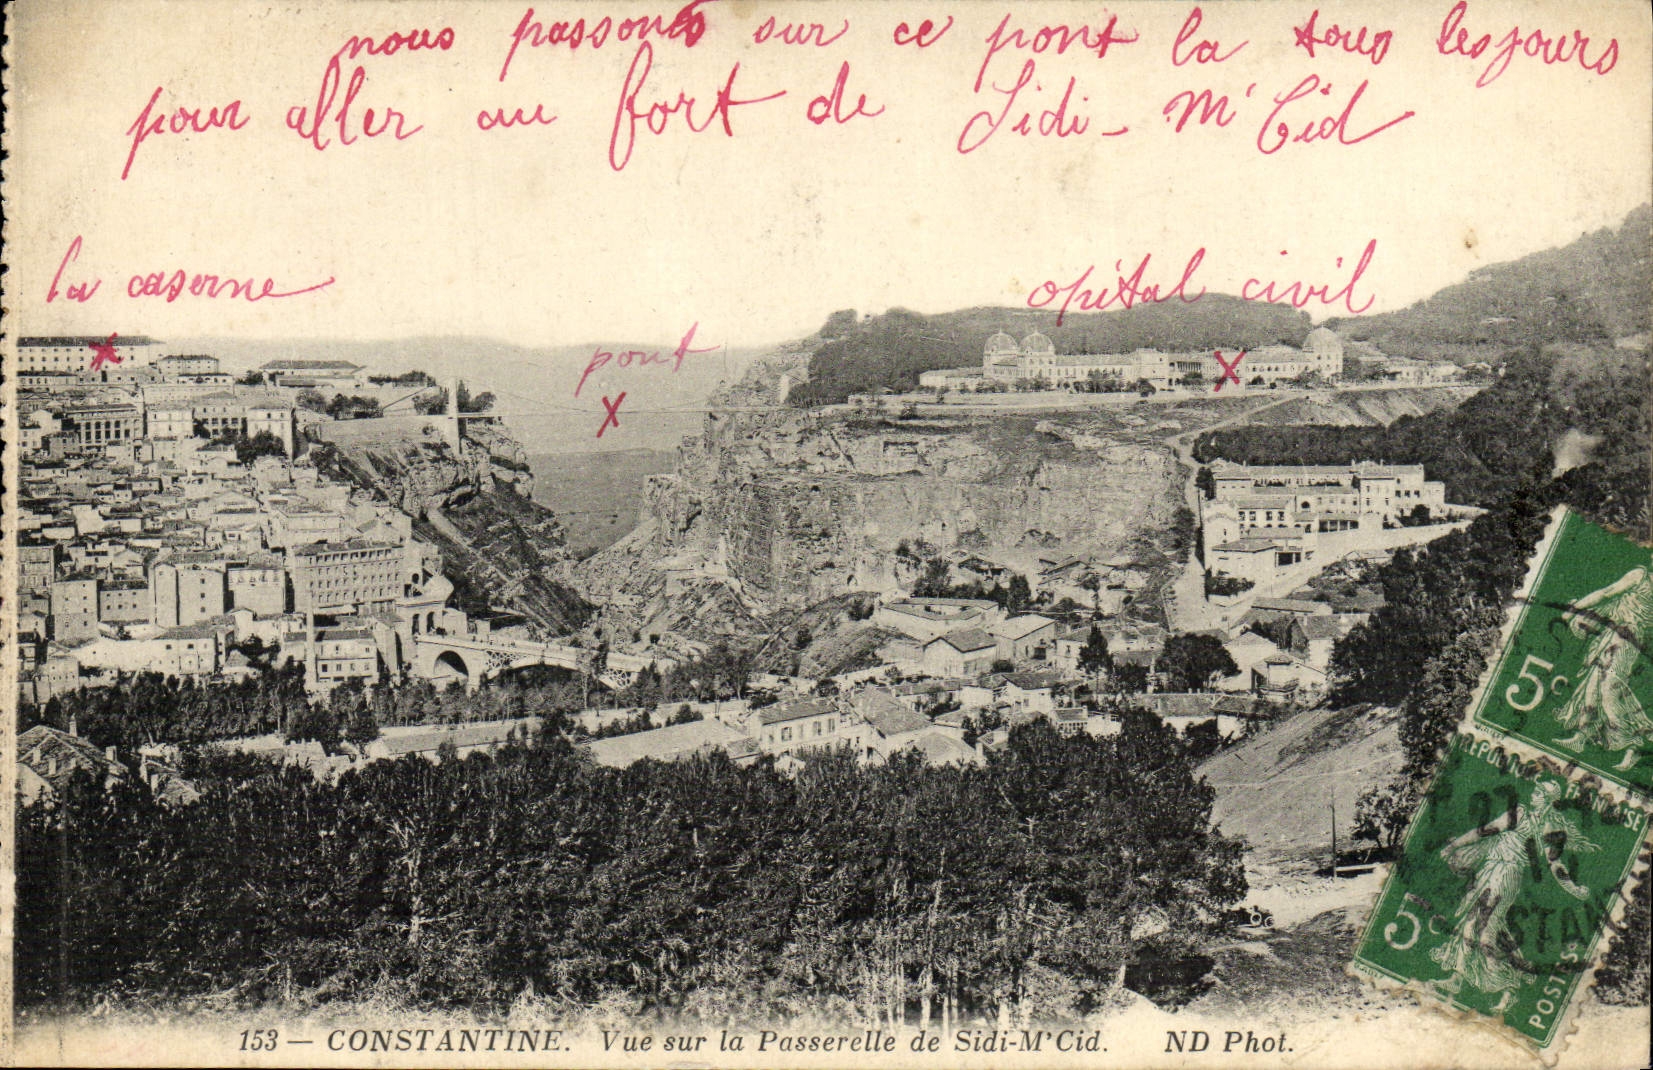 nous passons sur ce pont la tous les jours
pour aller au fort de Sidi-M'Cid
la caserne
opital civil
pont
5c
REPUBLIQUE FRANÇAISE
27
13
5c
POSTES
153 — CONSTANTINE. Vue sur la Passerelle de Sidi-M'Cid. ND Phot.